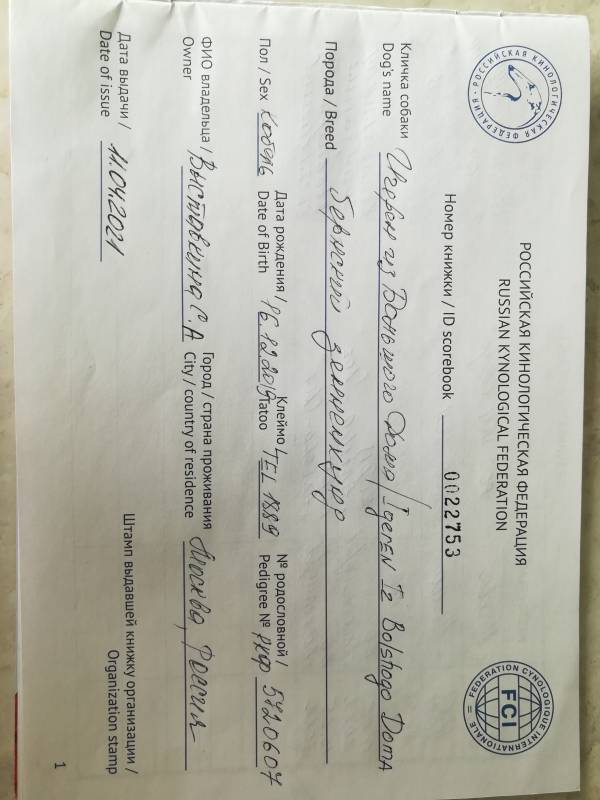 РОССИЙСКАЯ КИНОЛОГИЧЕСКАЯ ФЕДЕРАЦИЯ
РОССИЙСКАЯ КИНОЛОГИЧЕСКАЯ ФЕДЕРАЦИЯ
RUSSIAN KYNOLOGICAL FEDERATION
FEDERATION CYNOLOGIQUE INTERNATIONALE
FCI
Номер книжки / ID scorebook 0022753
Кличка собаки
Dog's name Игерен из Большого Дома / IgeREN Iz Bolshogo Doma
Порода / Breed Бернский зенненхунд
Пол / Sex Кобель Дата рождения / Date of Birth 16.12.2019 Клеймо / Tatoo TEL 1889 № родословной / Pedigree № РКФ 5820607
ФИО владельца /
Owner С.А Город / страна проживания
City / country of residence Москва, Россия
Дата выдачи /
Date of issue 11.04.2021
Штамп выдавшей книжку организации /
Organization stamp
1